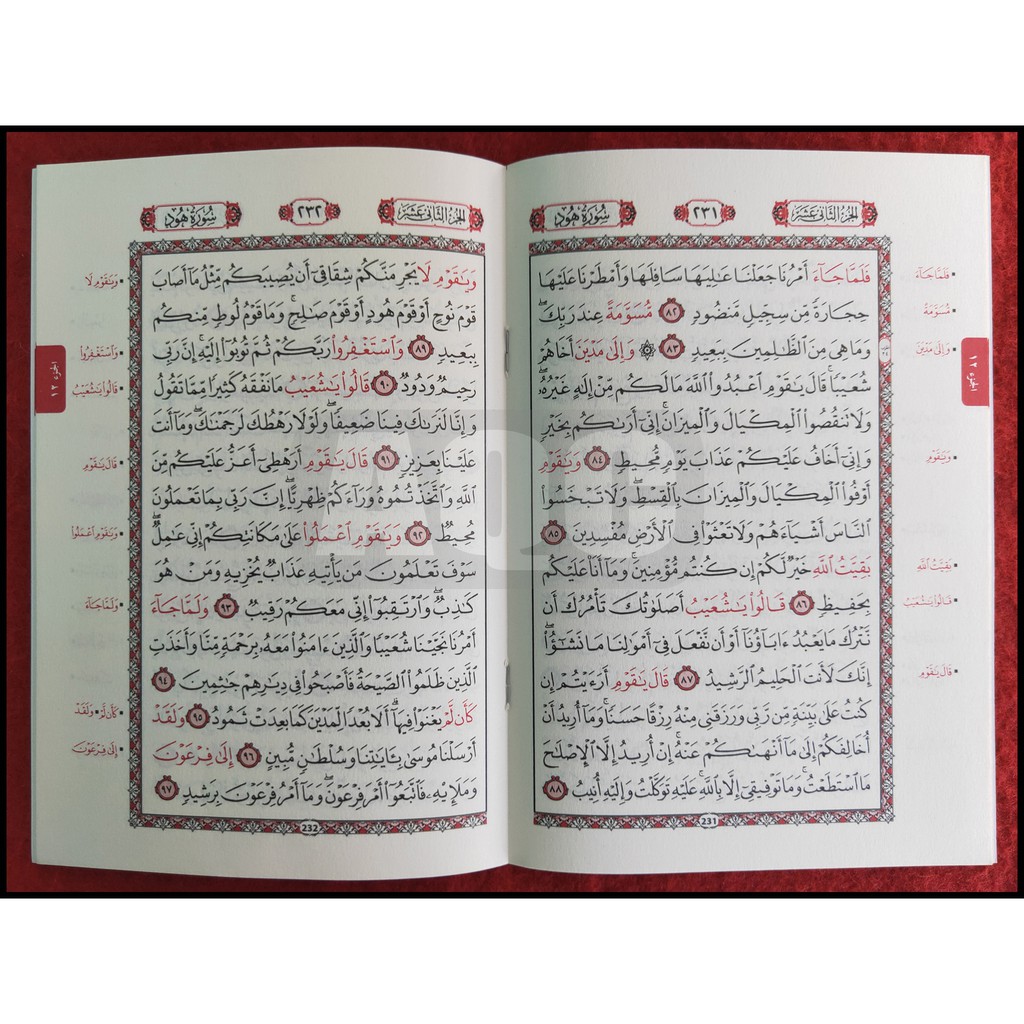 الجزء الثاني عشر
٢٣١
سورة هود
فَلَمَّا جَآءَ أَمْرُنَا جَعَلْنَا عَـٰلِيَهَا سَافِلَهَا وَأَمْطَرْنَا عَلَيْهَا
حِجَارَةً مِّن سِجِّيلٍ مَّنضُودٍ ٨٢ مُّسَوَّمَةً عِندَ رَبِّكَ ۖ
وَمَا هِىَ مِنَ ٱلظَّـٰلِمِينَ بِبَعِيدٍ ٨٣ ۞ وَإِلَىٰ مَدْيَنَ أَخَاهُمْ
شُعَيْبًا ۚ قَالَ يَـٰقَوْمِ ٱعْبُدُوا۟ ٱللَّهَ مَا لَكُم مِّنْ إِلَـٰهٍ غَيْرُهُۥ ۖ
وَلَا تَنقُصُوا۟ ٱلْمِكْيَالَ وَٱلْمِيزَانَ ۚ إِنِّىٓ أَرَىٰكُم بِخَيْرٍ
وَإِنِّىٓ أَخَافُ عَلَيْكُمْ عَذَابَ يَوْمٍ مُّحِيطٍ ٨٤ وَيَـٰقَوْمِ
أَوْفُوا۟ ٱلْمِكْيَالَ وَٱلْمِيزَانَ بِٱلْقِسْطِ ۖ وَلَا تَبْخَسُوا۟
ٱلنَّاسَ أَشْيَآءَهُمْ وَلَا تَعْثَوْا۟ فِى ٱلْأَرْضِ مُفْسِدِينَ ٨٥
بَقِيَّتُ ٱللَّهِ خَيْرٌ لَّكُمْ إِن كُنتُم مُّؤْمِنِينَ ۚ وَمَآ أَنَا۠ عَلَيْكُم
بِحَفِيظٍ ٨٦ قَالُوا۟ يَـٰشُعَيْبُ أَصَلَوٰتُكَ تَأْمُرُكَ أَن
نَّتْرُكَ مَا يَعْبُدُ ءَابَآؤُنَآ أَوْ أَن نَّفْعَلَ فِىٓ أَمْوَٰلِنَا مَا نَشَـٰٓؤُا۟ ۖ
إِنَّكَ لَأَنتَ ٱلْحَلِيمُ ٱلرَّشِيدُ ٨٧ قَالَ يَـٰقَوْمِ أَرَءَيْتُمْ إِن
كُنتُ عَلَىٰ بَيِّنَةٍ مِّن رَّبِّى وَرَزَقَنِى مِنْهُ رِزْقًا حَسَنًا ۚ وَمَآ أُرِيدُ أَنْ
أُخَالِفَكُمْ إِلَىٰ مَآ أَنْهَىٰكُمْ عَنْهُ ۚ إِنْ أُرِيدُ إِلَّا ٱلْإِصْلَـٰحَ
مَا ٱسْتَطَعْتُ ۚ وَمَا تَوْفِيقِىٓ إِلَّا بِٱللَّهِ ۚ عَلَيْهِ تَوَكَّلْتُ وَإِلَيْهِ أُنِيبُ ٨٨
231
فَلَمَّا جَآءَ
مُّسَوَّمَةً
وَإِلَىٰ مَدْيَنَ
وَيَـٰقَوْمِ
بَقِيَّتُ ٱللَّهِ
قَالُوا۟ يَـٰشُعَيْبُ
قَالَ يَـٰقَوْمِ
الجزء ١٢
الجزء الثاني عشر
٢٣٢
سورة هود
وَيَـٰقَوْمِ لَا يَجْرِمَنَّكُمْ شِقَاقِىٓ أَن يُصِيبَكُم مِّثْلُ مَآ أَصَابَ
قَوْمَ نُوحٍ أَوْ قَوْمَ هُودٍ أَوْ قَوْمَ صَـٰلِحٍ ۚ وَمَا قَوْمُ لُوطٍ مِّنكُم
بِبَعِيدٍ ٨٩ وَٱسْتَغْفِرُوا۟ رَبَّكُمْ ثُمَّ تُوبُوٓا۟ إِلَيْهِ ۚ إِنَّ رَبِّى
رَحِيمٌ وَدُودٌ ٩٠ قَالُوا۟ يَـٰشُعَيْبُ مَا نَفْقَهُ كَثِيرًا مِّمَّا تَقُولُ
وَإِنَّا لَنَرَىٰكَ فِينَا ضَعِيفًا ۖ وَلَوْلَا رَهْطُكَ لَرَجَمْنَـٰكَ ۖ وَمَآ أَنتَ
عَلَيْنَا بِعَزِيزٍ ٩١ قَالَ يَـٰقَوْمِ أَرَهْطِىٓ أَعَزُّ عَلَيْكُم مِّنَ
ٱللَّهِ وَٱتَّخَذْتُمُوهُ وَرَآءَكُمْ ظِهْرِيًّا ۖ إِنَّ رَبِّى بِمَا تَعْمَلُونَ
مُحِيطٌ ٩٢ وَيَـٰقَوْمِ ٱعْمَلُوا۟ عَلَىٰ مَكَانَتِكُمْ إِنِّى عَـٰمِلٌ ۖ
سَوْفَ تَعْلَمُونَ مَن يَأْتِيهِ عَذَابٌ يُخْزِيهِ وَمَنْ هُوَ
كَـٰذِبٌ ۖ وَٱرْتَقِبُوٓا۟ إِنِّى مَعَكُمْ رَقِيبٌ ٩٣ وَلَمَّا جَآءَ
أَمْرُنَا نَجَّيْنَا شُعَيْبًا وَٱلَّذِينَ ءَامَنُوا۟ مَعَهُۥ بِرَحْمَةٍ مِّنَّا وَأَخَذَتِ
ٱلَّذِينَ ظَلَمُوا۟ ٱلصَّيْحَةُ فَأَصْبَحُوا۟ فِى دِيَـٰرِهِمْ جَـٰثِمِينَ ٩٤
كَأَن لَّمْ يَغْنَوْا۟ فِيهَآ ۗ أَلَا بُعْدًا لِّمَدْيَنَ كَمَا بَعِدَتْ ثَمُودُ ٩٥ وَلَقَدْ
أَرْسَلْنَا مُوسَىٰ بِـَٔايَـٰتِنَا وَسُلْطَـٰنٍ مُّبِينٍ ٩٦ إِلَىٰ فِرْعَوْنَ
وَمَلَإِي۟هِۦ فَٱتَّبَعُوٓا۟ أَمْرَ فِرْعَوْنَ ۖ وَمَآ أَمْرُ فِرْعَوْنَ بِرَشِيدٍ ٩٧
232
وَيَـٰقَوْمِ لَا
وَٱسْتَغْفِرُوا۟
قَالُوا۟ يَـٰشُعَيْبُ
قَالَ يَـٰقَوْمِ
وَيَـٰقَوْمِ ٱعْمَلُوا۟
وَلَمَّا جَآءَ
كَأَن لَّمْ • وَلَقَدْ
إِلَىٰ فِرْعَوْنَ
الجزء ١٢